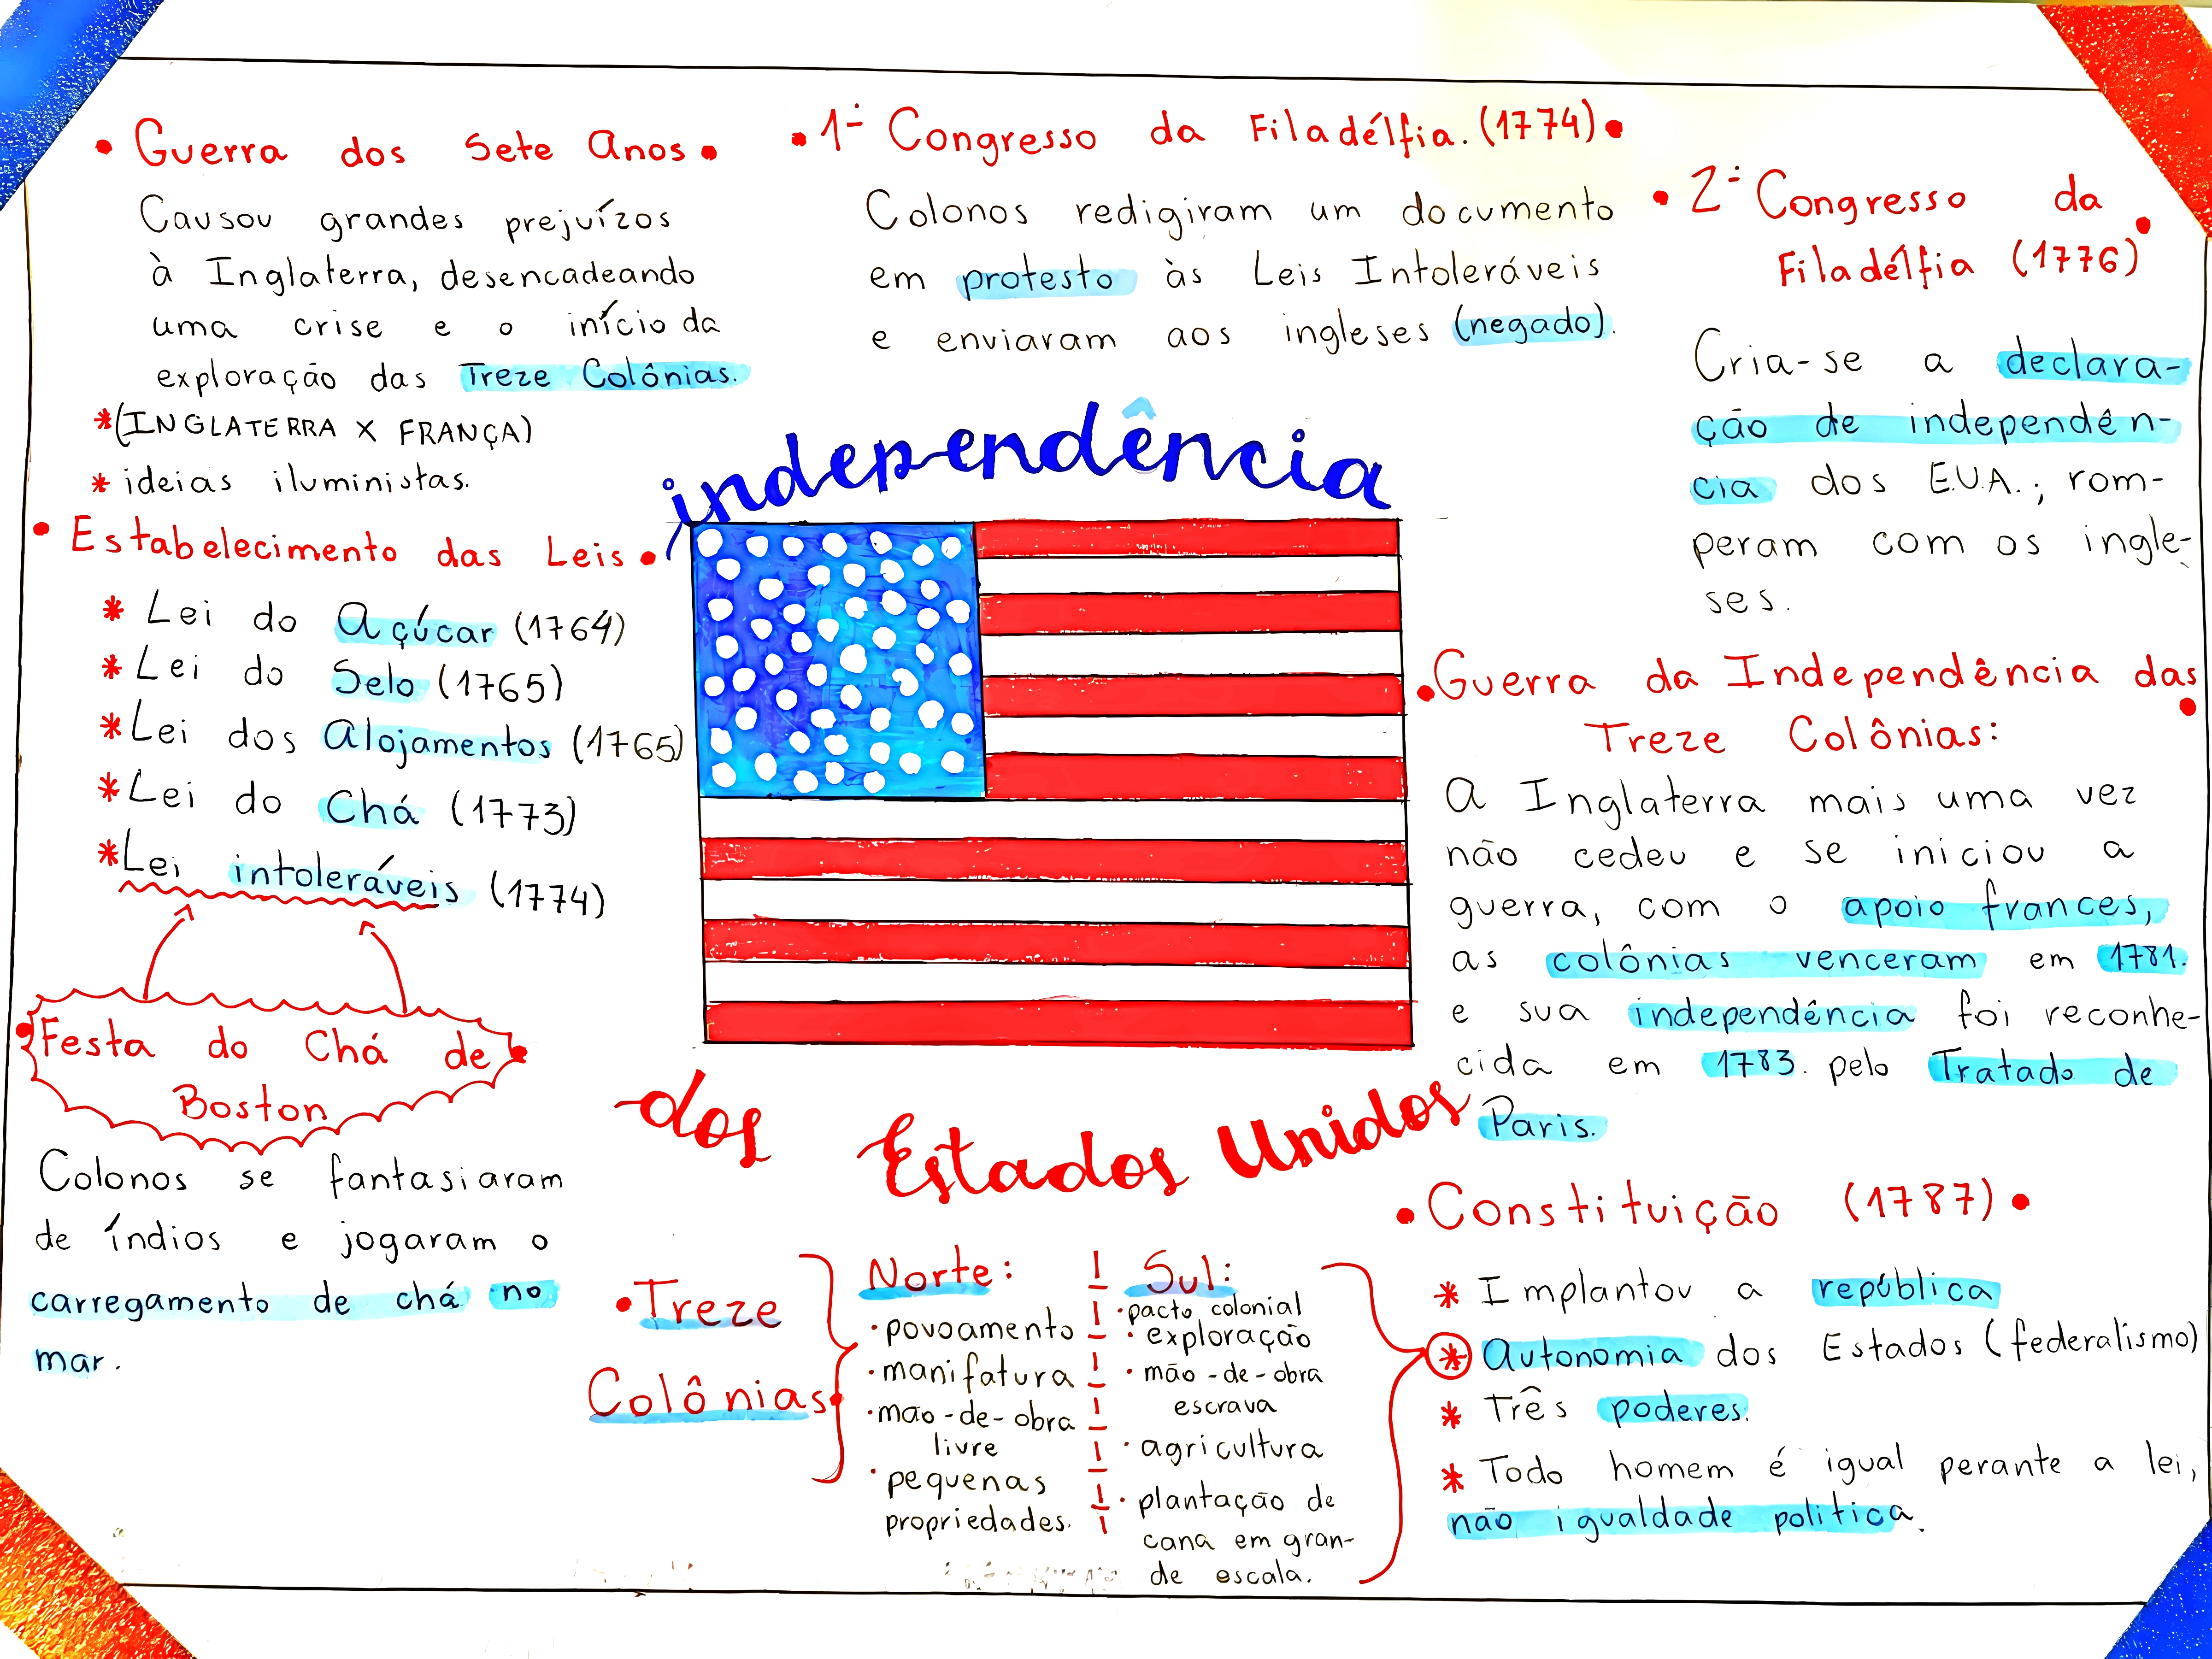 • Guerra dos Sete Anos •
Causou grandes prejuízos
à Inglaterra, desencadeando
uma crise e o início da
exploração das Treze Colônias.
*(INGLATERRA X FRANÇA)
* ideias iluministas.
• Estabelecimento das Leis •
* Lei do Açúcar (1764)
* Lei do Selo (1765)
* Lei dos Alojamentos (1765)
* Lei do Chá (1773)
* Lei intoleráveis (1774)
• Festa do Chá de •
Boston
Colonos se fantasiaram
de índios e jogaram o
carregamento de chá no
mar.
• 1º Congresso da Filadélfia. (1774) •
Colonos redigiram um documento
em protesto às Leis Intoleráveis
e enviaram aos ingleses (negado).
independência
dos Estados Unidos
• Treze
Colônias •
Norte:
• povoamento
• manifatura
• mão-de-obra
livre
• pequenas
propriedades.
Sul:
• pacto colonial
• exploração
• mão-de-obra
escrava
• agricultura
• plantação de
cana em gran-
de escala.
• 2º Congresso da
Filadélfia (1776) •
Cria-se a declara-
ção de independên-
cia dos E.U.A.; rom-
peram com os ingle-
ses.
• Guerra da Independência das •
Treze Colônias:
A Inglaterra mais uma vez
não cedeu e se iniciou a
guerra, com o apoio frances,
as colônias venceram em 1781.
e sua independência foi reconhe-
cida em 1783. pelo Tratado de
Paris.
• Constituição (1787) •
* Implantou a república
* Autonomia dos Estados (federalismo)
* Três poderes.
* Todo homem é igual perante a lei,
não igualdade politica.